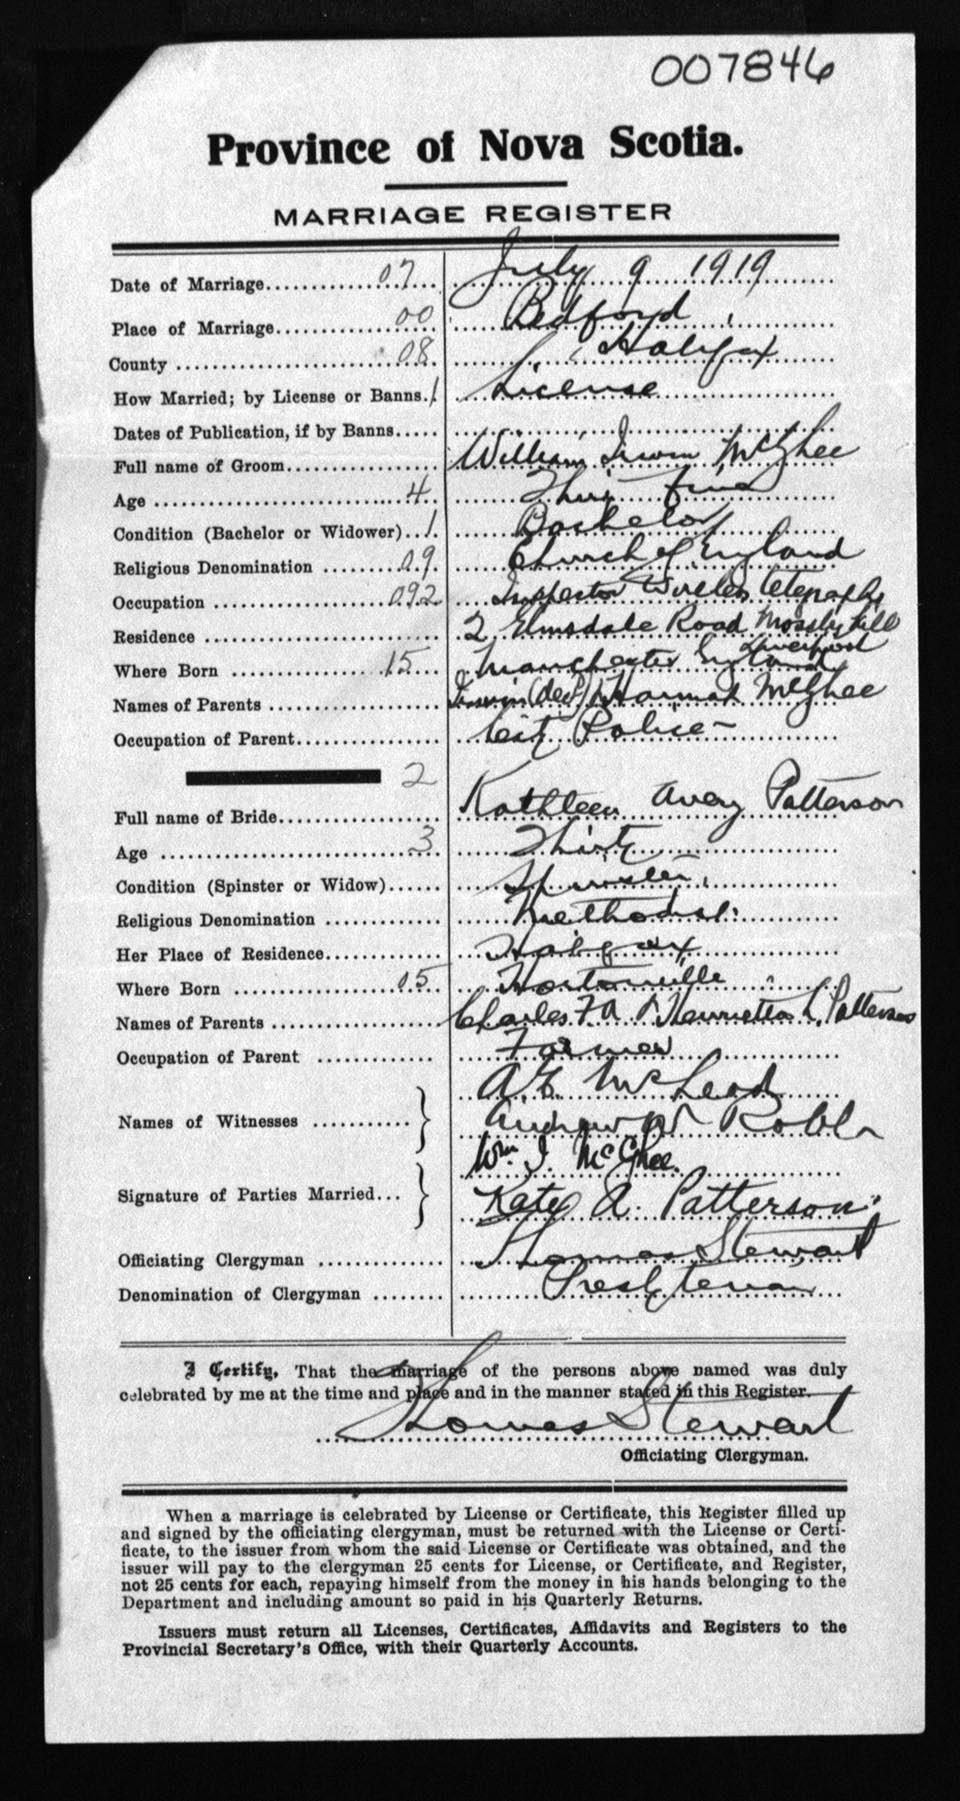 007846
Province of Nova Scotia.
MARRIAGE REGISTER
Date of Marriage 07 July 9 1919
Place of Marriage 00 Bedford
County 08 Halifax
How Married; by License or Banns. 1 License
Dates of Publication, if by Banns
Full name of Groom William Irwin McGhee
Age 4 Thirty five
Condition (Bachelor or Widower) 1 Bachelor
Religious Denomination 09 Church of England
Occupation 092 Inspector Wireless telegraphy
Residence 2 Elmsdale Road Mossley hill Liverpool
Where Born 15 Manchester England
Names of Parents (decd) Hannah McGhee
Occupation of Parent City Police
2
Full name of Bride Kathleen Avery Patterson
Age 3 Thirty
Condition (Spinster or Widow) Spinster
Religious Denomination Methodist
Her Place of Residence Halifax
Where Born 05 Hortonville
Names of Parents Charles F A & Henrietta L. Patterson
Occupation of Parent Farmer
Names of Witnesses A.G. McLeod
Andrew Robb
Signature of Parties Married Wm I. McGhee.
Kate A. Patterson
Officiating Clergyman Thomas Stewart
Denomination of Clergyman Presbyterian
I Certify, That the marriage of the persons above named was duly
celebrated by me at the time and place and in the manner stated in this Register.
Thomas Stewart
Officiating Clergyman.
When a marriage is celebrated by License or Certificate, this Register filled up
and signed by the officiating clergyman, must be returned with the License or Certi-
ficate, to the issuer from whom the said License or Certificate was obtained, and the
issuer will pay to the clergyman 25 cents for License, or Certificate, and Register,
not 25 cents for each, repaying himself from the money in his hands belonging to the
Department and including amount so paid in his Quarterly Returns.
Issuers must return all Licenses, Certificates, Affidavits and Registers to the
Provincial Secretary's Office, with their Quarterly Accounts.